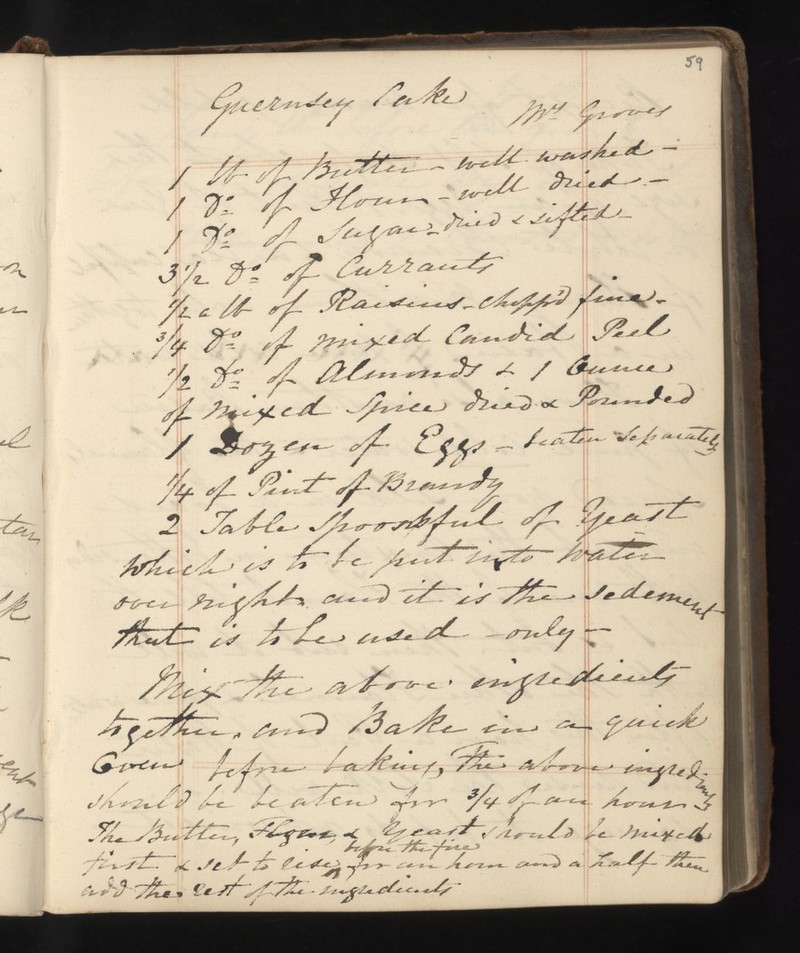 59
Guernsey Cake
Mrs Groves
1 lb of Butter - well washed -
1 Do of Flour - well dried -
1 Do of Sugar - dried & sifted -
3 1/2 Do of Currants
1/2 a lb of Raisins - chopp'd fine -
3/4 Do of mixed Candid Peel
1/2 Do of Almonds & 1 Ounce
of mixed Spice dried & Pounded
1 Dozen of Eggs - beaten separately
1/4 of Pint of Brandy
2 Table Spoonsful of Yeast
which is to be put into water
over night and it is the sedement
that is to be used - only -
Mix the above ingredients
together. and Bake in a quick
Oven before baking, The above ingredients
should be beaten for 3/4 of an hour
The Butter, Flour, & Yeast should be mixed
before the fire
first & set to rise for an hour and a half then
add the rest of the ingredients